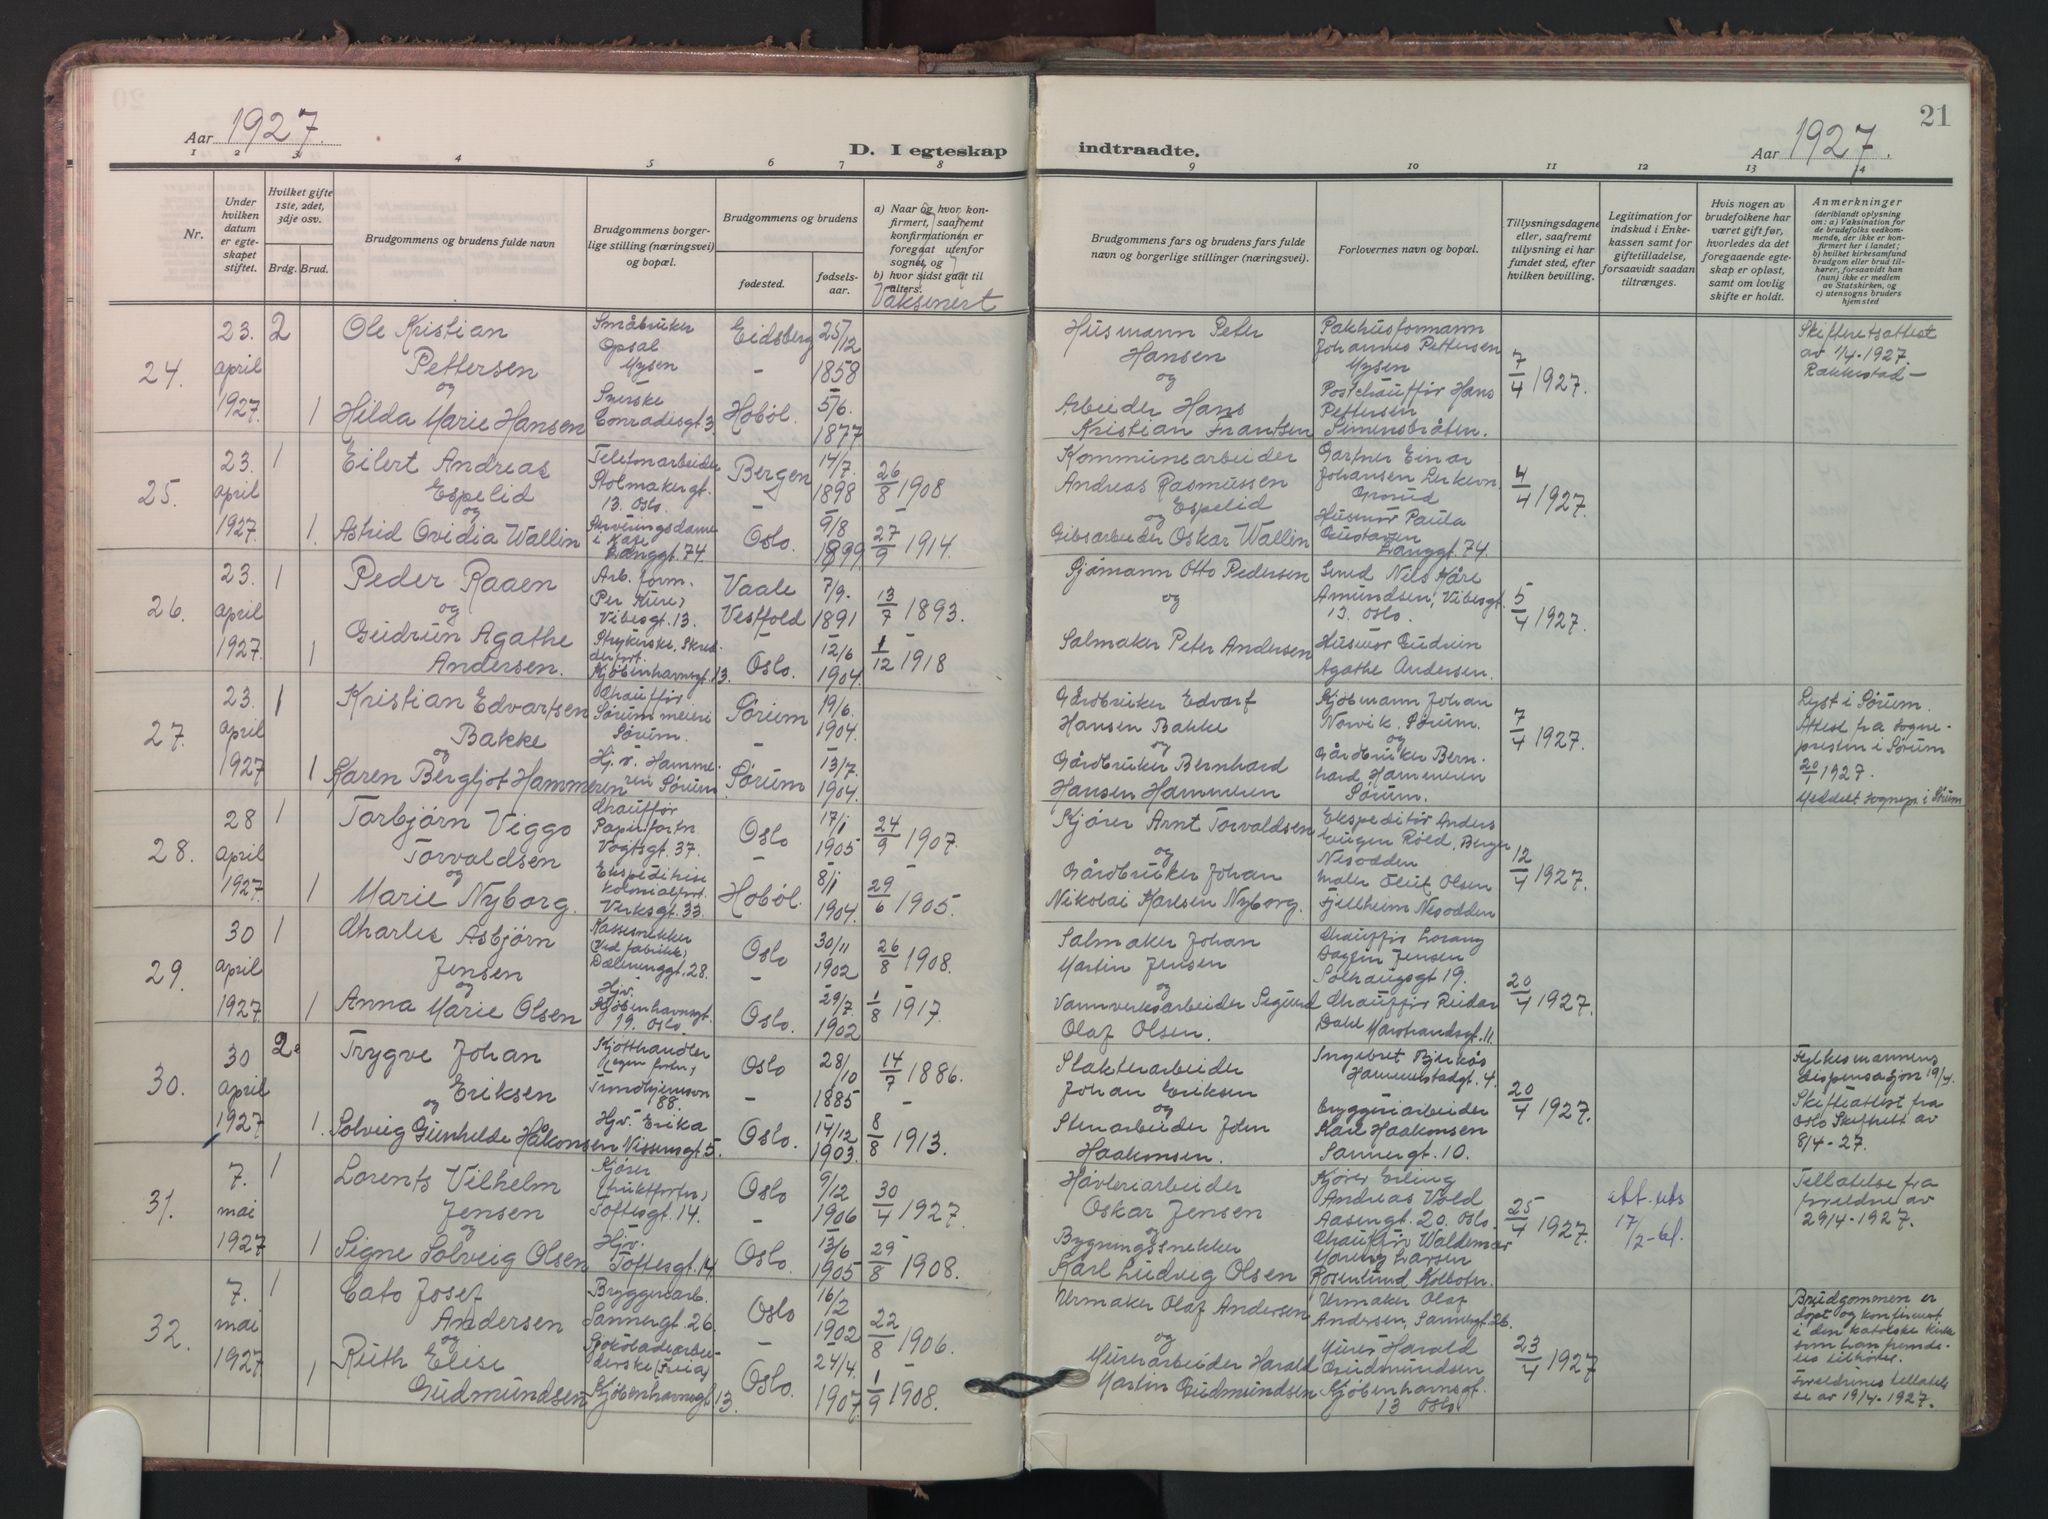 20
21
Aar 1927.
D. I egteskap indtraadte.
Aar 1927.
1 2 3 4 5 6 7 8 9 10 11 12 13 14
Nr.
Under hvilken datum er egteskapet stiftet.
Hvilket gifte 1ste, 2det, 3dje osv.
Brdg. Brud.
Brudgommens og brudens fulde navn
Brudgommens borgerlige stilling (næringsvei) og bopæl.
Brudgommens og brudens
fødested.
fødselsaar.
a) Naar og hvor konfirmert, saafremt konfirmationen er foregaat utenfor sognet, og
b) hvor sidst gaat til alters.
Vaksinert
Brudgommens fars og brudens fars fulde navn og borgerlige stillinger (næringsvei).
Forlovernes navn og bopæl.
Tillysningsdagene eller, saafremt tillysning ei har fundet sted, efter hvilken bevilling.
Legitimation for indskud i Enkekassen samt for giftetilladelse, forsaavidt saadan tiltrænges.
Hvis nogen av brudefolkene har været gift før, hvorledes da det foregaaende egteskap er opløst, samt om lovlig skifte er holdt.
Anmerkninger
(deriblandt oplysning om: a) Vaksination for de brudefolks vedkommende, der ikke er konfirmert her i landet; b) hvilket kirkesamfund brudgom eller brud tilhører, forsaavidt han (hun) ikke er medlem av Statskirken, og c) utensogns bruders hjemsted
24. 23. april 1927. 2 1
Ole Kristian Pettersen
og
Hilda Marie Hansen
Småbruker Opsal Mysen
Conradisgt. 3
Eidsberg 25/12 1858
Hobøl. 5/6. 1877
Husmann Peter Hansen
og
Arbeider Hans Kristian Frantsen
Pakhusformann Johannes Pettersen Mysen
Postchauffør Hans Pettersen Simensbråten.
7/4 1927.
Skifteretsattest av 1/4-1927. Rakkestad
25. 23. april 1927. 1 1.
Eilert Andreas Espelid
og
Astrid Ovidia Wallin
Stolmakergt. 13. Oslo.
Serveringsdame i Kafé Langgt. 74.
Bergen 14/7. 1898 26/8 1908
Oslo. 9/8 1899 27/9 1914.
Kommunearbeider Andreas Rasmussen Espelid
og
Gibsarbeider Oskar Wallin
Gartner Einar Johansen Grorud
Husmor Paula Gustavsen Langgt. 74.
4/4 1927.
26. 23. april 1927. 1 1
Peder Raaen
og
Gudrun Agathe Andersen.
Arb. form. Vibesgt. 13.
Strykerske,
Kjøbenhavnsgt. 13.
Vaale Vestfold 7/9. 1891 13/7 1893.
Oslo. 12/6 1904. 1/12 1918
Sjømann Otto Pedersen
og
Salmaker Peter Andersen
Smed Nils Kåre Amundsen, Vibesgt. 13. Oslo.
Husmor Gudrun Agathe Andersen.
5/4 1927.
27. 23. april 1927 1 1
Kristian Edvartsen Bakke
og
Karen Bergljot Hammeren
Chauffør Sørum meieri Sørum.
Hj. v. Hammeren Sørum.
Sørum 19/6. 1904.
Sørum 13/7. 1904.
Gårdbruker Edvart Hansen Bakke
og
Gårdbruker Bernhard Hansen Hammeren
Kjøbmann Johan Norvik. Sørum.
og
Gårdbruker Bernhard Hammeren Sørum.
7/4 1927.
Lyst i Sørum. Attest fra sognepresten i Sørum 20/1 1927.
Meddelt sognepr. i Sørum
28. 28 april 1927 1 1
Torbjørn Viggo Torvaldsen
og
Marie Nyborg.
Chauffør Papirfortn. Vogtsgt. 37.
Ekspeditrise kolonialfort. Verksgt. 33
Oslo 17/1 1905 24/9 1907.
Hobøl. 8/1 1904. 29/6 1905.
Kjører Arnt Torvaldsen
og
Gårdbruker Johan Nikolai Karlsen Nyborg.
Ekspeditør Anders Nesodden
Maler Oluf Olsen Fjellheim Nesodden
12/4 1927.
29. 30 april 1927. 1 1
Charles Asbjørn Jensen
og
Anna Marie Olsen
Kassesnekker Ved fabrikk, Dælenenggt. 28.
Hjv. Kjøbenhavnsgt. 19. Oslo.
Oslo 30/11 1902 26/8 1908.
Oslo. 29/7. 1902 1/8 1917.
Salmaker Johan Martin Jensen
og
Vannverksarbeider Sigurd Olaf Olsen.
Chauffør Lorang Dagfin Jensen Solhaugsgt 19.
Chauffør Reidar Dahl Marstrandsgt. 11.
20/4 1927.
30. 30 april 1927 2. 1.
Trygve Johan Eriksen
og
Solveig Gunhilde Håkonsen
Kjøtthandler Trondhjemsvn 88.
Hjv. Erika Nissensgt 5.
Oslo 28/10 1885 14/7 1886.
Oslo. 14/12 1903. 8/8 1913.
Slakterarbeider Johan Eriksen
og
Stenarbeider John Haakonsen.
Ingebret Bjerkås Hammerstadgt. 4.
Bryggeriarbeider Karl Haakonsen Sannergt. 10.
20/4 1927.
Fylkesmannens dispensasjon 19/4. Skifteattest fra Oslo Skifteret av 8/4-27.
31. 7. mai 1927 1 1
Lorents Vilhelm Jensen
og
Signe Solveig Olsen
Kjører (fruktfortn,) Toftesgt. 14.
Hjv. Toftesgt. 14
Oslo 9/12 1906 30/4 1927.
Oslo. 13/6 1905 29/8 1908.
Høvleriarbeider Oskar Jensen
og
Bygningssnekker Karl Ludvig Olsen
Kjører Erling Andreas Vold Aasengt. 20. Oslo.
Chauffør Waldemar Larsen Rosenlund Kolbotn.
25/4 1927.
att. uts 17/2-61.
Tillatelse fra foreldre av 29/4-1927.
32. 7. mai 1927 1 1
Cato Josef Andersen
og
Ruth Elise Gudmundsen
Bryggeriarb. Sannergt. 26.
Sjokoladearbeiderske (Freia) Kjøbenhavnsgt 13.
Oslo 16/2 1902 22/8 1906.
Oslo. 24/4. 1907. 1/9 1908.
Urmaker Olaf Andersen
og
Murerarbeider Harald Martin Gudmundsen
Urmaker Olaf Andersen, Sannergt 26.
Murer Harald Gudmundsen Kjøbenhavnsgt. 13 Oslo
23/4 1927
Brudgommen er døpt og konfirmert i den katolske kirke som han fremdeles tilhører. Foreldrenes tillatelse av 19/4-1927.